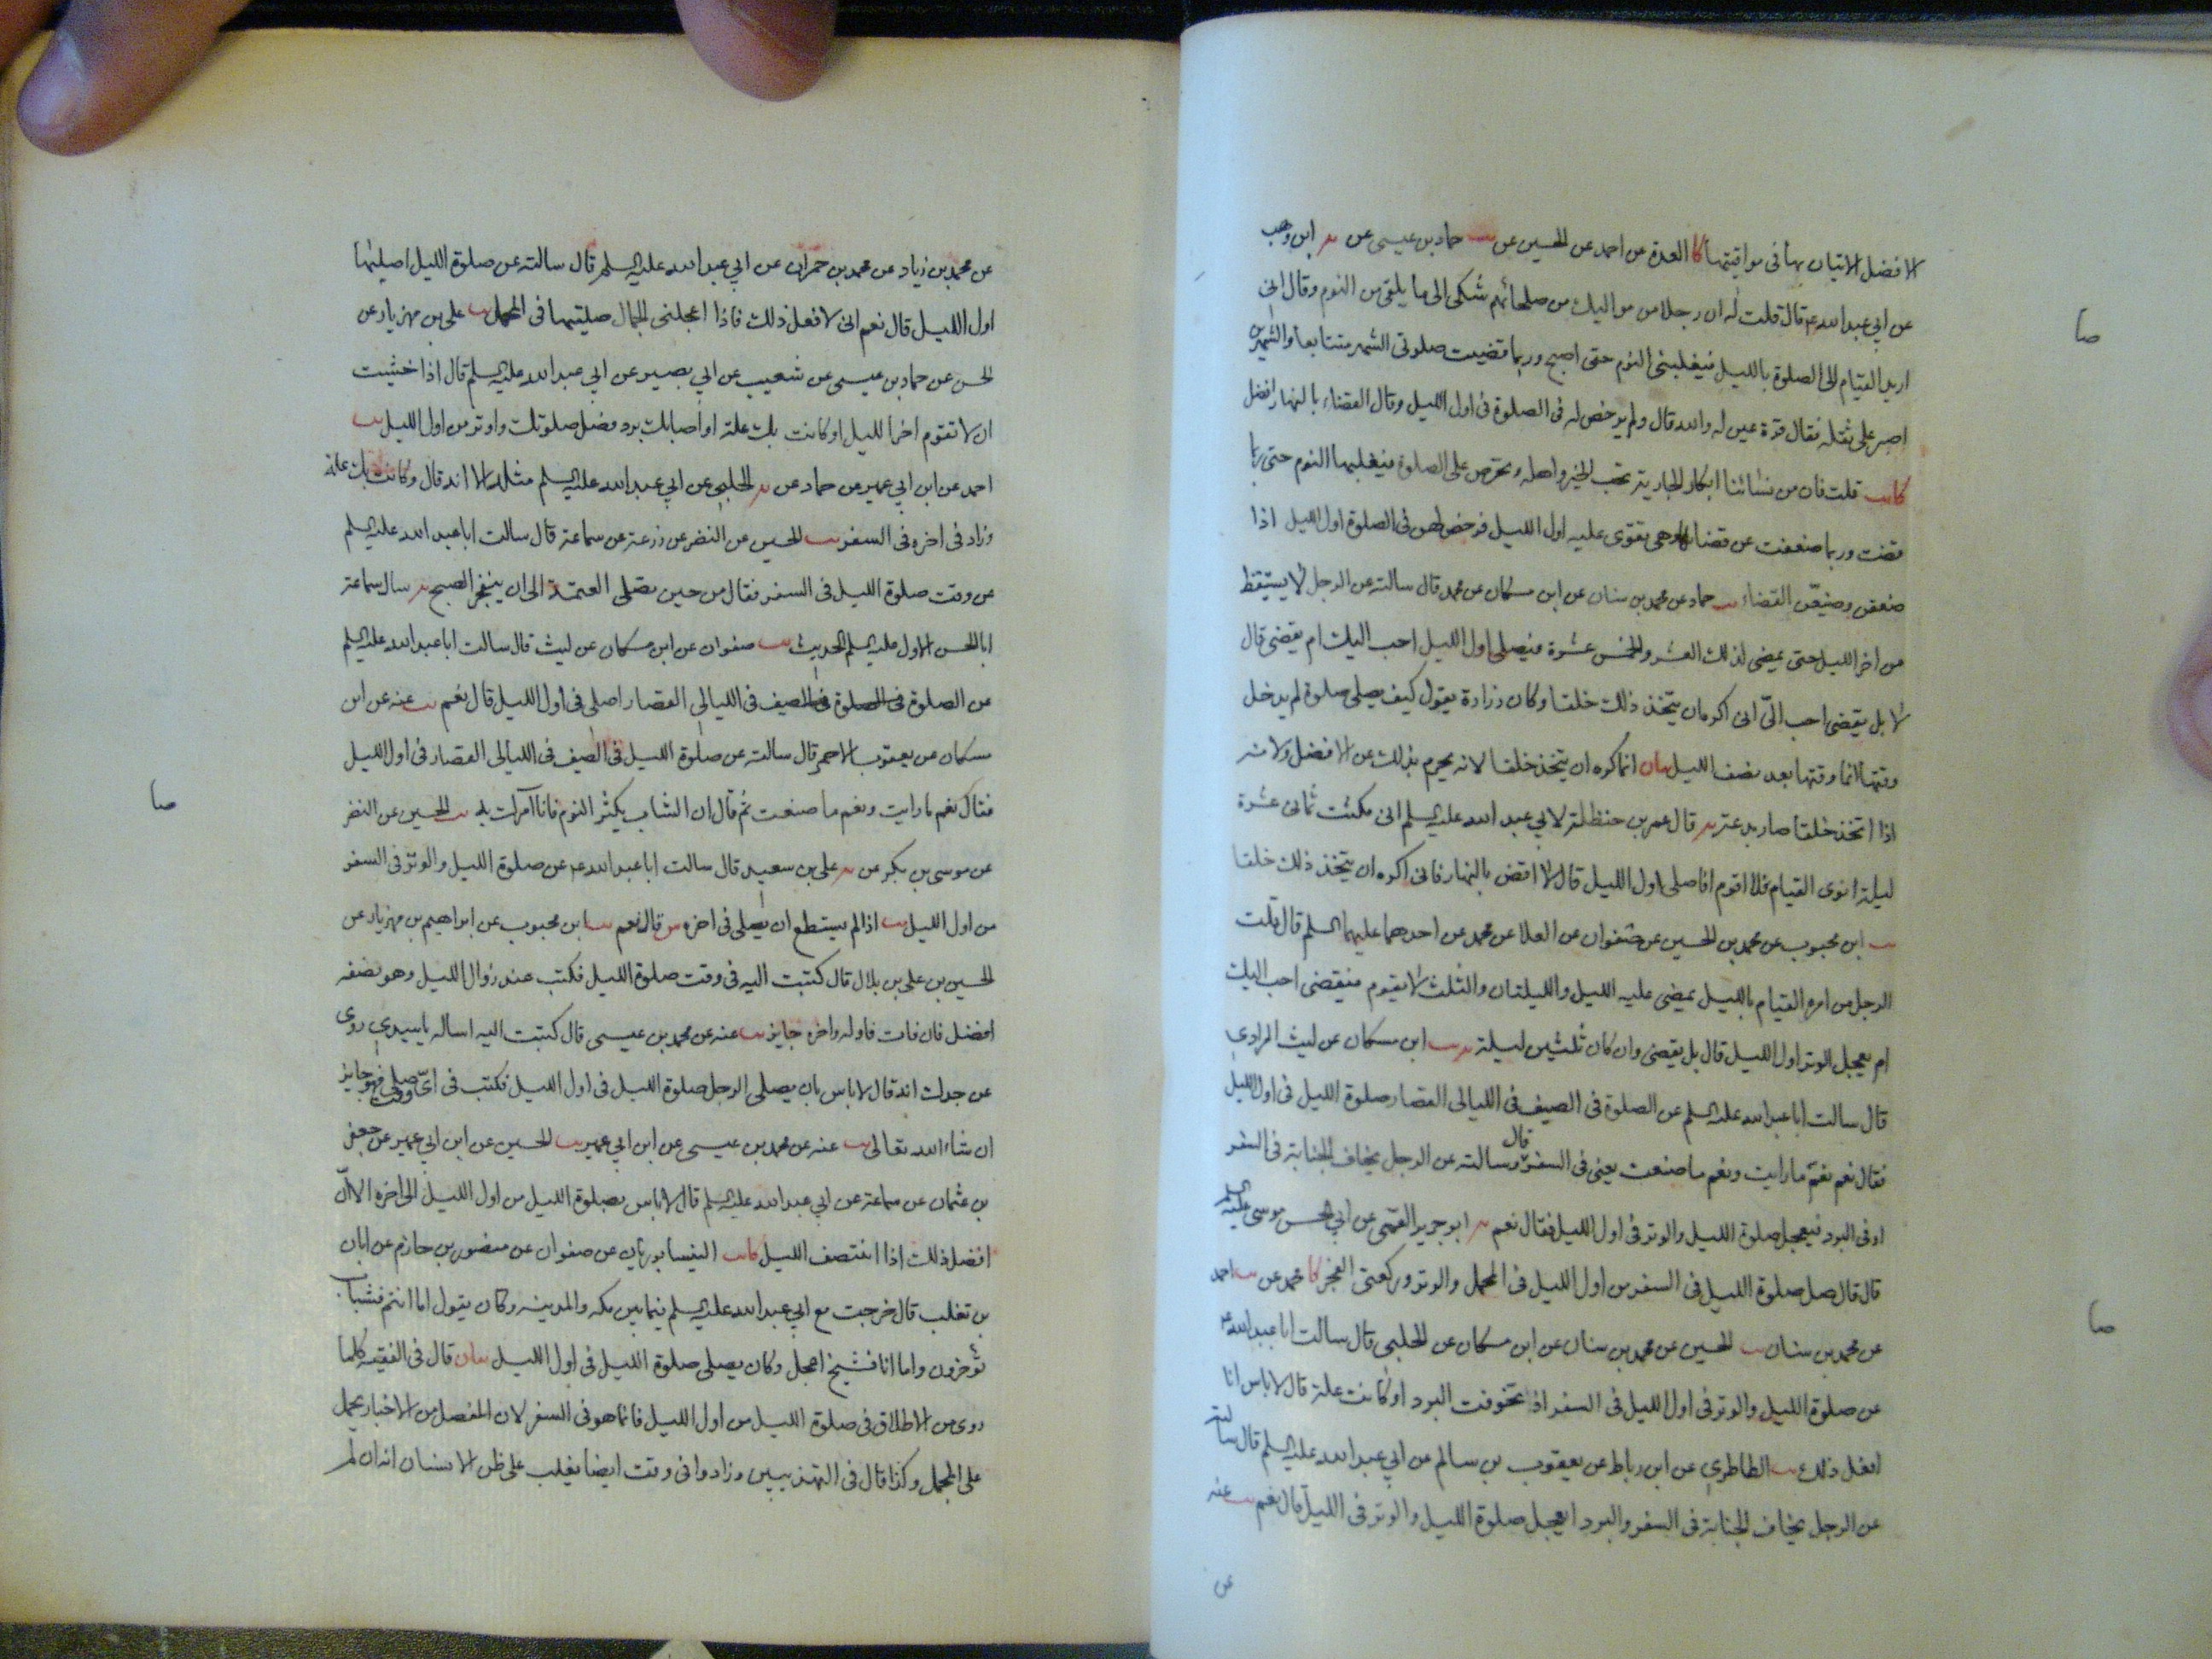 الافضل الاتيان بها فى مواقيتها كا العدة عن احمد عن الحسين عن يب حماد بن عيسى عن يه ابن وهب
عن ابي عبدالله ع قال قلت له ان رجلا من مواليك من صلحائهم شكى الى ما يلقى من النوم وقال انى
اريد القيام الى الصلوة بالليل فيغلبنى النوم حتى اصبح وربما قضيت صلوتى الشهر متتابعا والشهرين
اصبر على ثقله فقال قرة عين له والله قال ولم يرخص له فى الصلوة فى اول الليل وقال القضاء بالنهار افضل
كا يب قلت فان من نسائنا ابكارا الجارية تحب الخير واهله وتحرص على الصلوة فيغلبها النوم حتى ربما
قضت وربما ضعفت عن قضائه وهى تقوى عليه اول الليل فرخص لهن فى الصلوة اول الليل اذا
ضعفن وضيعن القضاء يب حماد عن محمد بن سنان عن ابن مسكان عن محمد قال سالته عن الرجل لا يستيقظ
من اخر الليل حتى يمضى لذلك العشر والخمس عشرة فيصلى اول الليل احب اليك ام يقضى قال
لا بل يقضى احب الىّ انى اكره ان يتخذ ذلك خلقا وكان زرارة يقول كيف يصلى صلوة لم يدخل
وقتها انما وقتها بعد نصف الليل بيان انما كره ان يتخذ خلقا لانه يحرم بذلك عن الافضل ولانه
اذا اتخذ خلقا صار بدعة يه قال عمر بن حنظلة لابي عبد الله عليه السلم انى مكثت ثمانى عشرة
ليلة انوى القيام فلا اقوم افاصلى اول الليل قال لا اقض بالنهار فانى اكره ان يتخذ ذلك خلقا
يب ابن محبوب عن محمد بن الحسين عن صفوان عن العلا عن محمد عن احدهما عليهما السلم قال قلت
الرجل من امره القيام بالليل يمضى عليه الليل والليلتان والثلث لا يقوم فيقضى احب اليك
ام يعجل الوتر اول الليل قال بل يقضى وان كان ثلثين ليلة يه يب ابن مسكان عن ليث المرادي
قال سالت ابا عبد الله عليه السلم عن الصلوة فى الصيف فى الليالى القصار صلوة الليل فى اول الليل
فقال نعم نعم ما رايت ونعم ما صنعت يعنى فى السفر قال وسالته عن الرجل يخاف الجنابة فى السفر
او فى البرد فيعجل صلوة الليل والوتر فى اول الليل فقال نعم يه ابو جرير القمى عن ابي الحسن موسى عليه السلم
قال قال صل صلوة الليل فى السفر من اول الليل فى المحمل والوتر وركعتى الفجر كا محمد عن يب احمد
عن محمد بن سنان يب الحسين عن محمد بن سنان عن ابن مسكان عن الحلبى قال سالت ابا عبدالله ع
عن صلوة الليل والوتر فى اول الليل فى السفر اذا تخوفت البرد او كانت علة قال لا باس انا
افعل ذلك يب الطاطري عن ابن رباط عن يعقوب بن سالم عن ابي عبد الله عليه السلم قال سالته
عن الرجل يخاف الجنابة فى السفر والبرد ايعجل صلوة الليل والوتر فى الليل قال نعم يب عنه
عن
صا
صا
عن محمد بن زياد عن محمد بن حمران عن ابي عبدالله عليه السلم قال سالته عن صلوة الليل اصليها
اول الليل قال نعم انى لافعل ذلك فاذا اعجلنى الجمال صليتها فى المحمل يب على بن مهزيار عن
الحسن عن حماد بن عيسى عن شعيب عن ابي بصير عن ابي عبد الله عليه السلم قال اذا خشيت
ان لا تقوم اخر الليل او كانت بك علة او اصابك برد فصل صلوتك واوتر من اول الليل يب
احمد عن ابن ابي عمير عن حماد عن يه الحلبى عن ابي عبد الله عليه السلم مثله الا انه قال وكانت بك علة
وزاد فى اخره فى السفر يب الحسين عن النضر عن زرعة عن سماعة قال سالت ابا عبد الله عليه السلم
عن وقت صلوة الليل فى السفر فقال من حين تصلى العتمة الى ان ينفجر الصبح يه سال سماعة
ابا الحسن الاول عليه السلم الحديث يب صفوان عن ابن مسكان عن ليث قال سالت ابا عبد الله عليه السلم
عن الصلوة فى الصلوة فى الصيف فى الليالى القصار اصلى فى اول الليل قال نعم يب عنه عن ابن
مسكان عن يعقوب الاحمر قال سالته عن صلوة الليل فى الصيف فى الليالى القصار فى اول الليل
فقال نعم ما رايت ونعم ما صنعت ثم قال ان الشاب يكثر النوم فانا آمرك به يب الحسين عن النضر
عن موسى بن بكر عن يه على بن سعيد قال سالت ابا عبدالله ع عن صلوة الليل والوتر فى السفر
من اول الليل يب اذا لم يستطع ان يصلى فى اخره ش قال نعم يب ابن محبوب عن ابراهيم بن مهزيار عن
الحسين بن على بن بلال قال كتبت اليه فى وقت صلوة الليل فكتب عند زوال الليل وهو نصفه
افضل فان فات فاوله واخره جايز يب عنه عن محمد بن عيسى قال كتبت اليه اساله يا سيدي روى
عن جدك انه قال لا باس بان يصلى الرجل صلوة الليل فى اول الليل فكتب فى اىّ وقت صلى فهو جايز
ان شاء الله تعالى يب عنه عن محمد بن عيسى عن ابن ابي عمير يب الحسين عن ابن ابي عمير عن جعفر
بن عثمان عن سماعة عن ابي عبد الله عليه السلم قال لا باس بصلوة الليل من اول الليل الى اخره الا انّ
افضل ذلك اذا انتصف الليل كا يب النيسابوريان عن صفوان عن منصور بن حازم عن ابان
بن تغلب قال خرجت مع ابي عبد الله عليه السلم فيما بين مكه والمدينه وكان يقول اما انتم فشباب
تؤخرون واما انا فشيخ اعجل وكان يصلى صلوة الليل فى اول الليل بيان قال فى الفقيه كلما
روى من الاطلاق فى صلوة الليل من اول الليل فانما هو فى السفر لان المفصل من الاخبار يحمل
على المجمل وكذا قال فى التهذيبين وزاد وانى وقت ايضا يغلب على ظن الانسان انه ان لم
صا